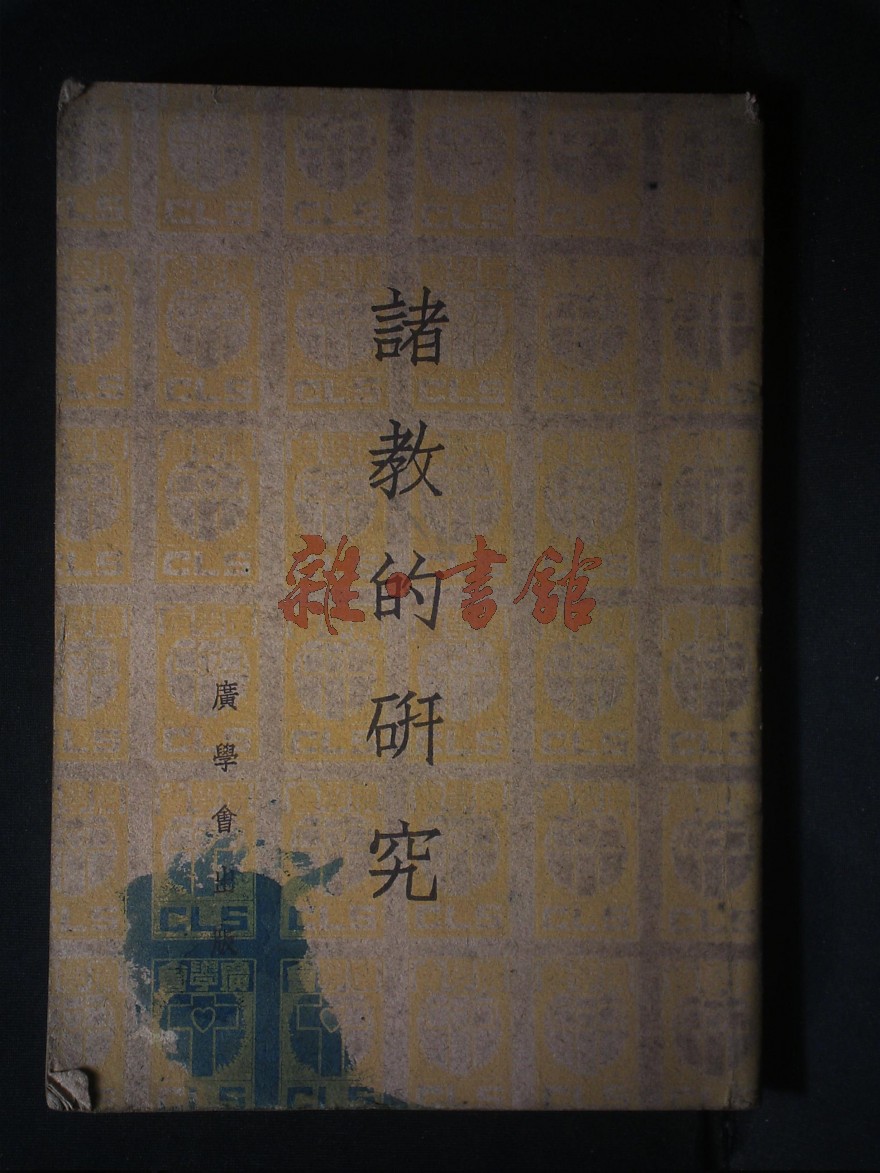 諸教的研究
廣學會出版
雜·書舘
CLS
廣學會